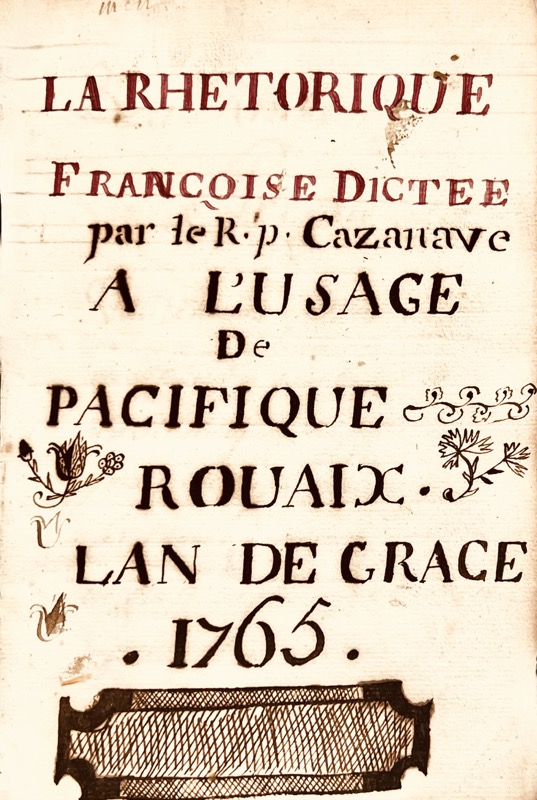 LA RHETORIQUE
FRANÇOISE DICTEE
par le R. p. Cazanave
A L'USAGE
De
PACIFIQUE
ROUAIX.
LAN DE GRACE
. 1765.